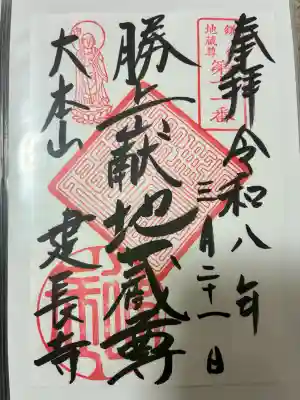 鎌
地蔵尊
第十一番
奉拝 令和八年
三月二十一日
勝上献地蔵尊
大本山 建長寺